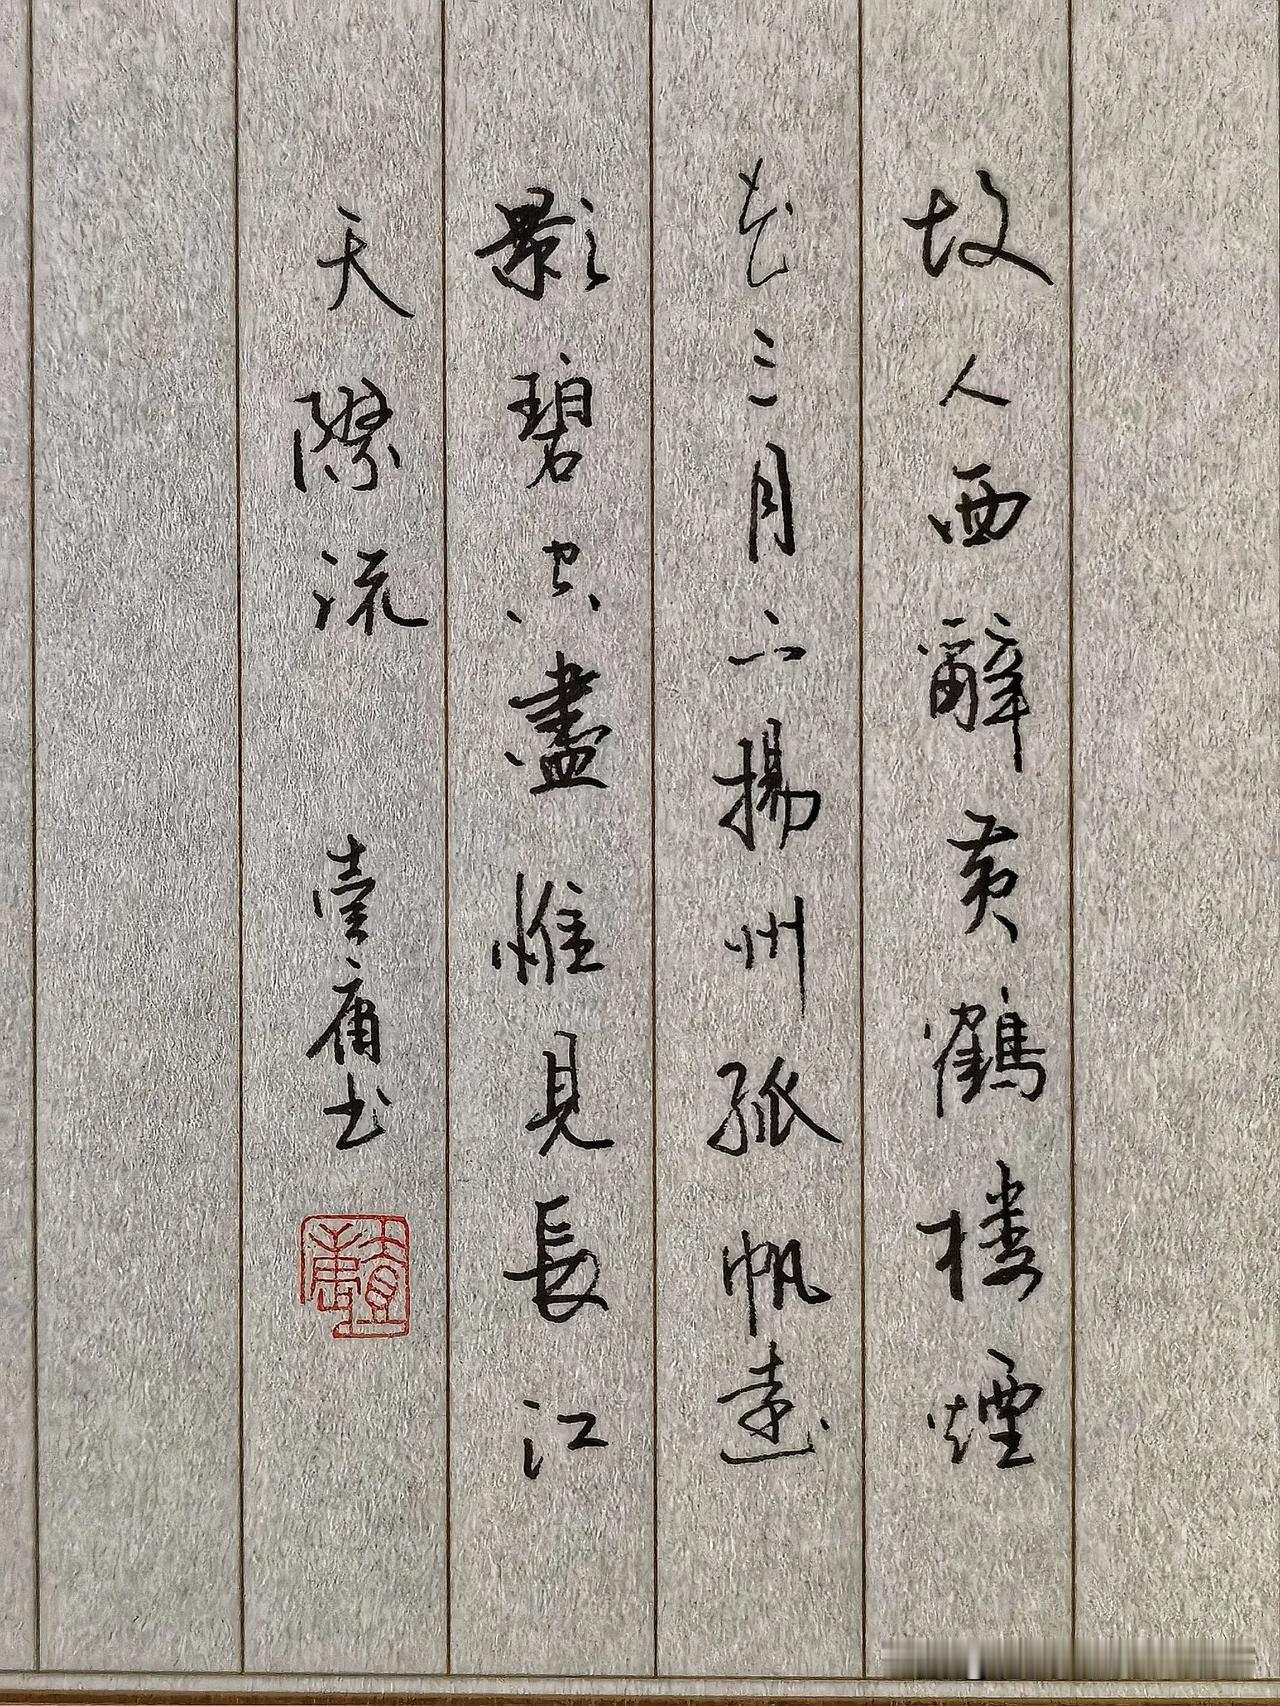 故人西辭黃鶴樓煙
花三月下揚州孤帆遠
影碧空盡惟見長江
天際流
壹庸書